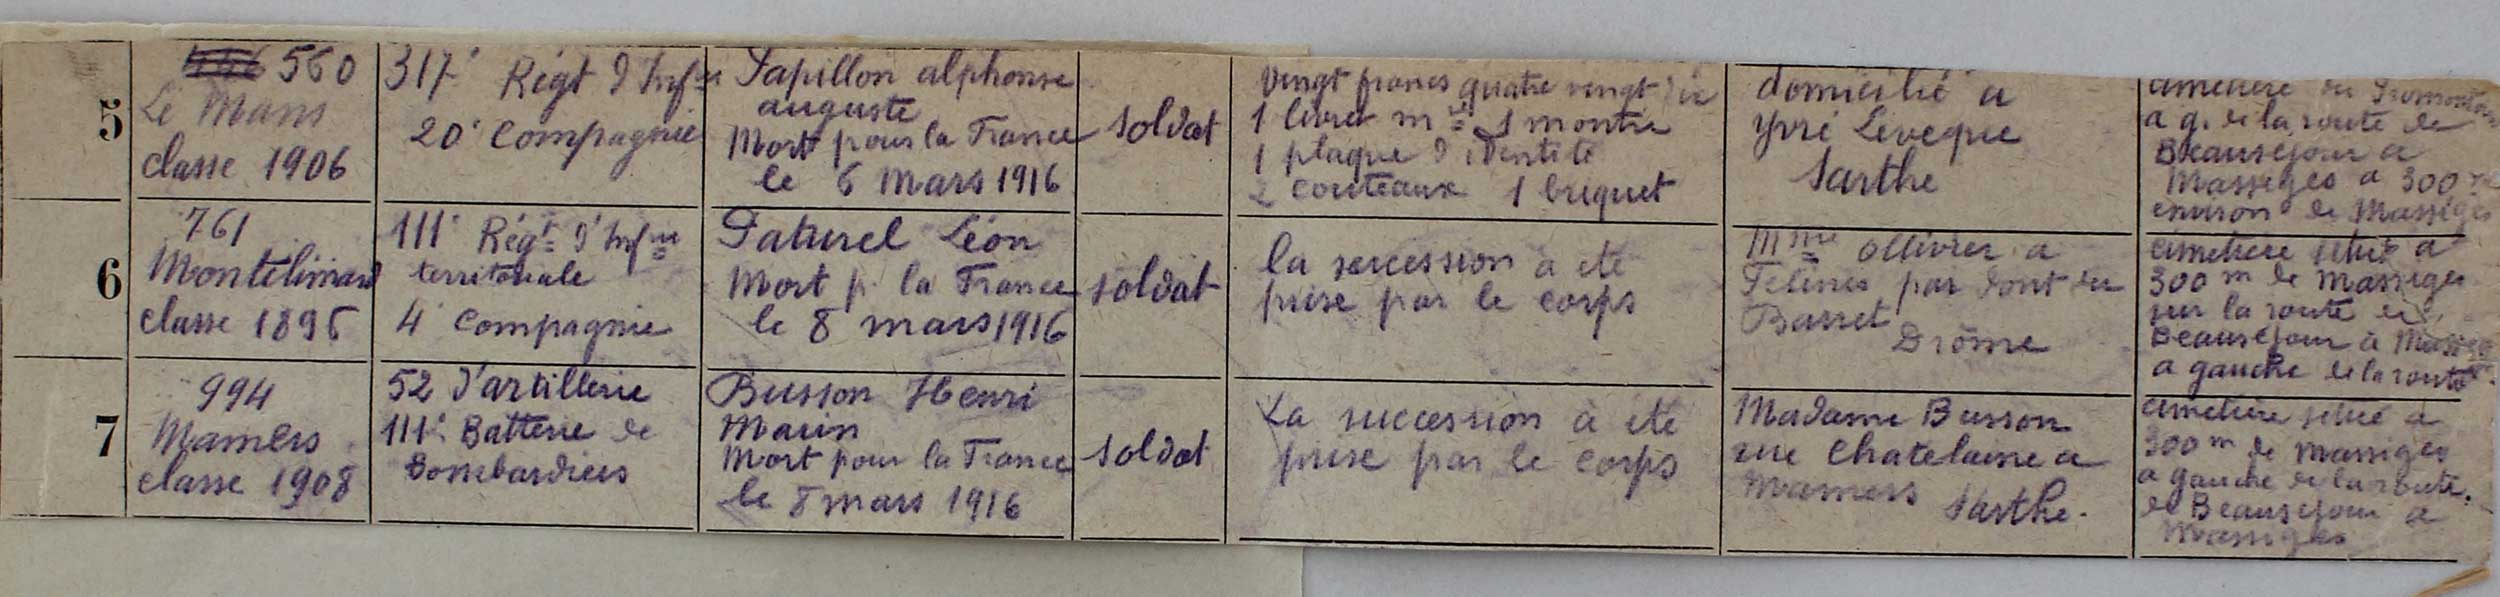 5
560
Le Mans
classe 1906
317e Régt d'Infie
20e Compagnie
Papillon alphonse
auguste
Mort pour la France
le 6 mars 1916
soldat
vingt francs quatre vingt dix
1 livret mre 1 montre
1 plaque d'identité
2 couteaux 1 briquet
domicilié a
Yvré Leveque
Sarthe
cimetière du Promontoire
a g. de la route de
Beausejour a
Massiges a 300 m
environ de Massiges
6
761
Montelimard
classe 1895
111e Régt d'Infie
territoriale
4e Compagnie
Paturel Léon
Mort p. la France
le 8 mars 1916
soldat
la succession a été
prise par le corps
Mme Ollivier a
Felines par Dont
Basset
Drôme
cimetière situé a
300 m de Massiges
sur la route de
Beauséjour à Massiges
a gauche de la route
7
994
Mamers
classe 1908
52 d'artillerie
111e Batterie de
Bombardiers
Busson Henri
Marin
Mort pour la France
le 8 mars 1916
soldat
La succession à été
prise par le corps
Madame Busson
rue Chatelaine a
Mamers Sarthe.
cimetière situé a
300 m de Massiges
a gauche de la route.
de Beausejour a
Massiges